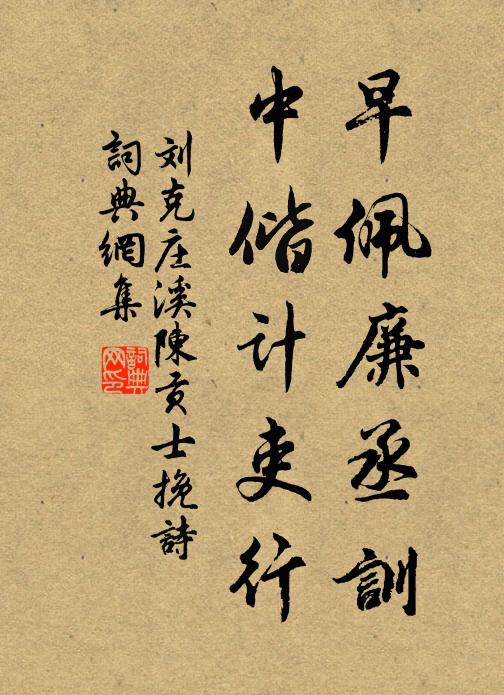 早佩廉丞訓
中偕计吏行
刘克庄溪陳贡士挽詩
詞典網集
詞典网印